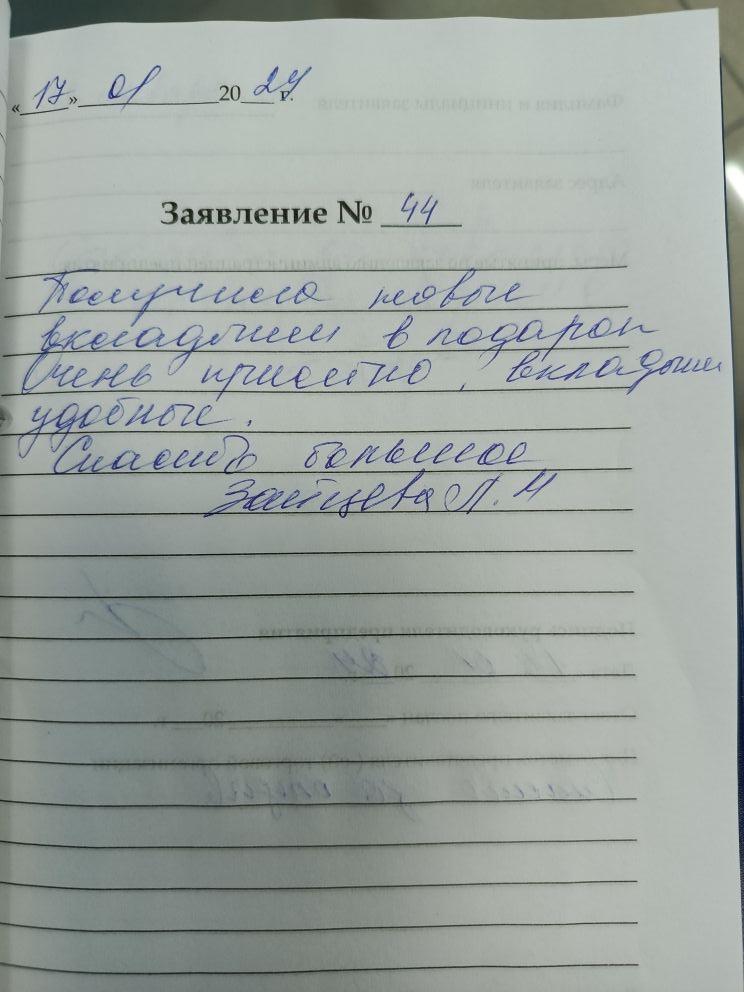 «17» 01 2024 г.
Заявление № 44
Получила новые
вкладыши в подарок
Очень приятно, вкладыши
удобные.
Спасибо большое
Зайцева Л. И